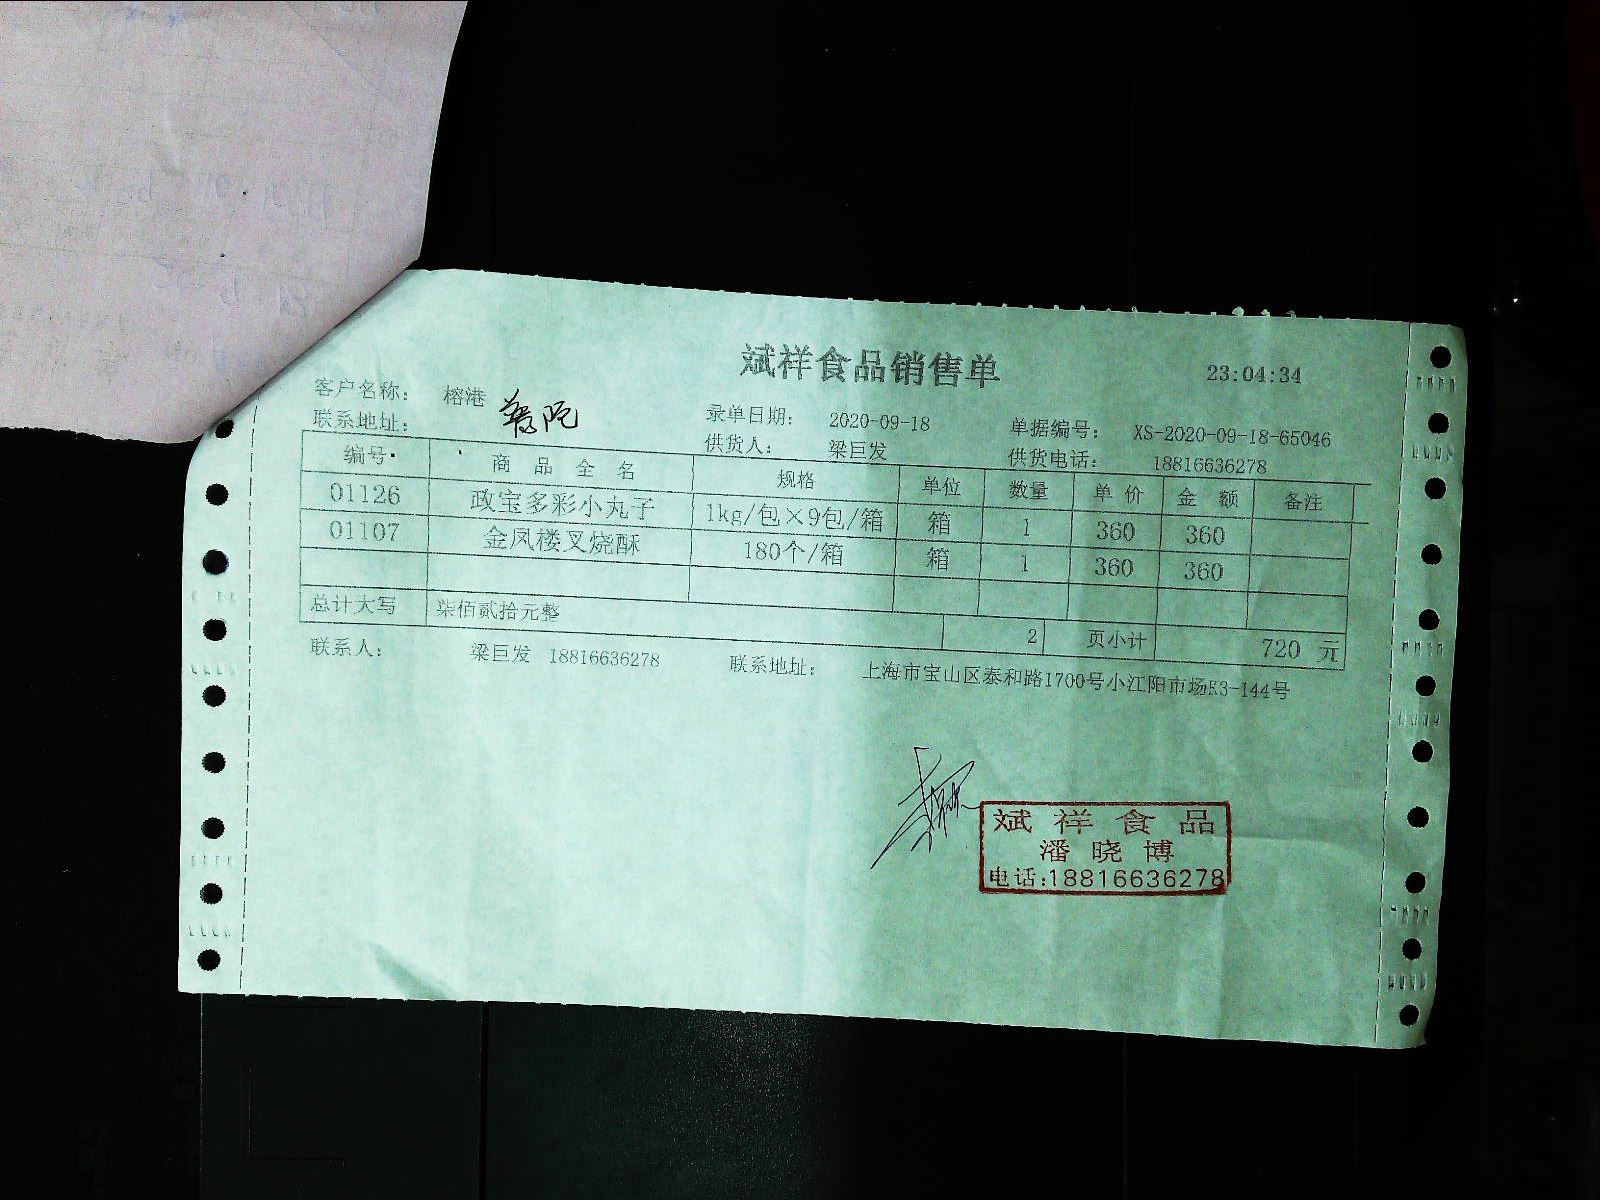 斌祥食品销售单 23:04:34
客户名称: 榕港 普陀
联系地址: 录单日期: 2020-09-18 单据编号: XS-2020-09-18-65046
供货人: 梁巨发 供货电话: 18816636278
编号 商品全名 规格 单位 数量 单价 金额 备注
01126 政宝多彩小丸子 1kg/包×9包/箱 箱 1 360 360
01107 金凤楼叉烧酥 180个/箱 箱 1 360 360
总计大写 柒佰贰拾元整 2 页小计 720 元
联系人: 梁巨发 18816636278 联系地址: 上海市宝山区泰和路1700号小江阳市场E3-144号
斌祥食品
潘晓博
电话:18816636278